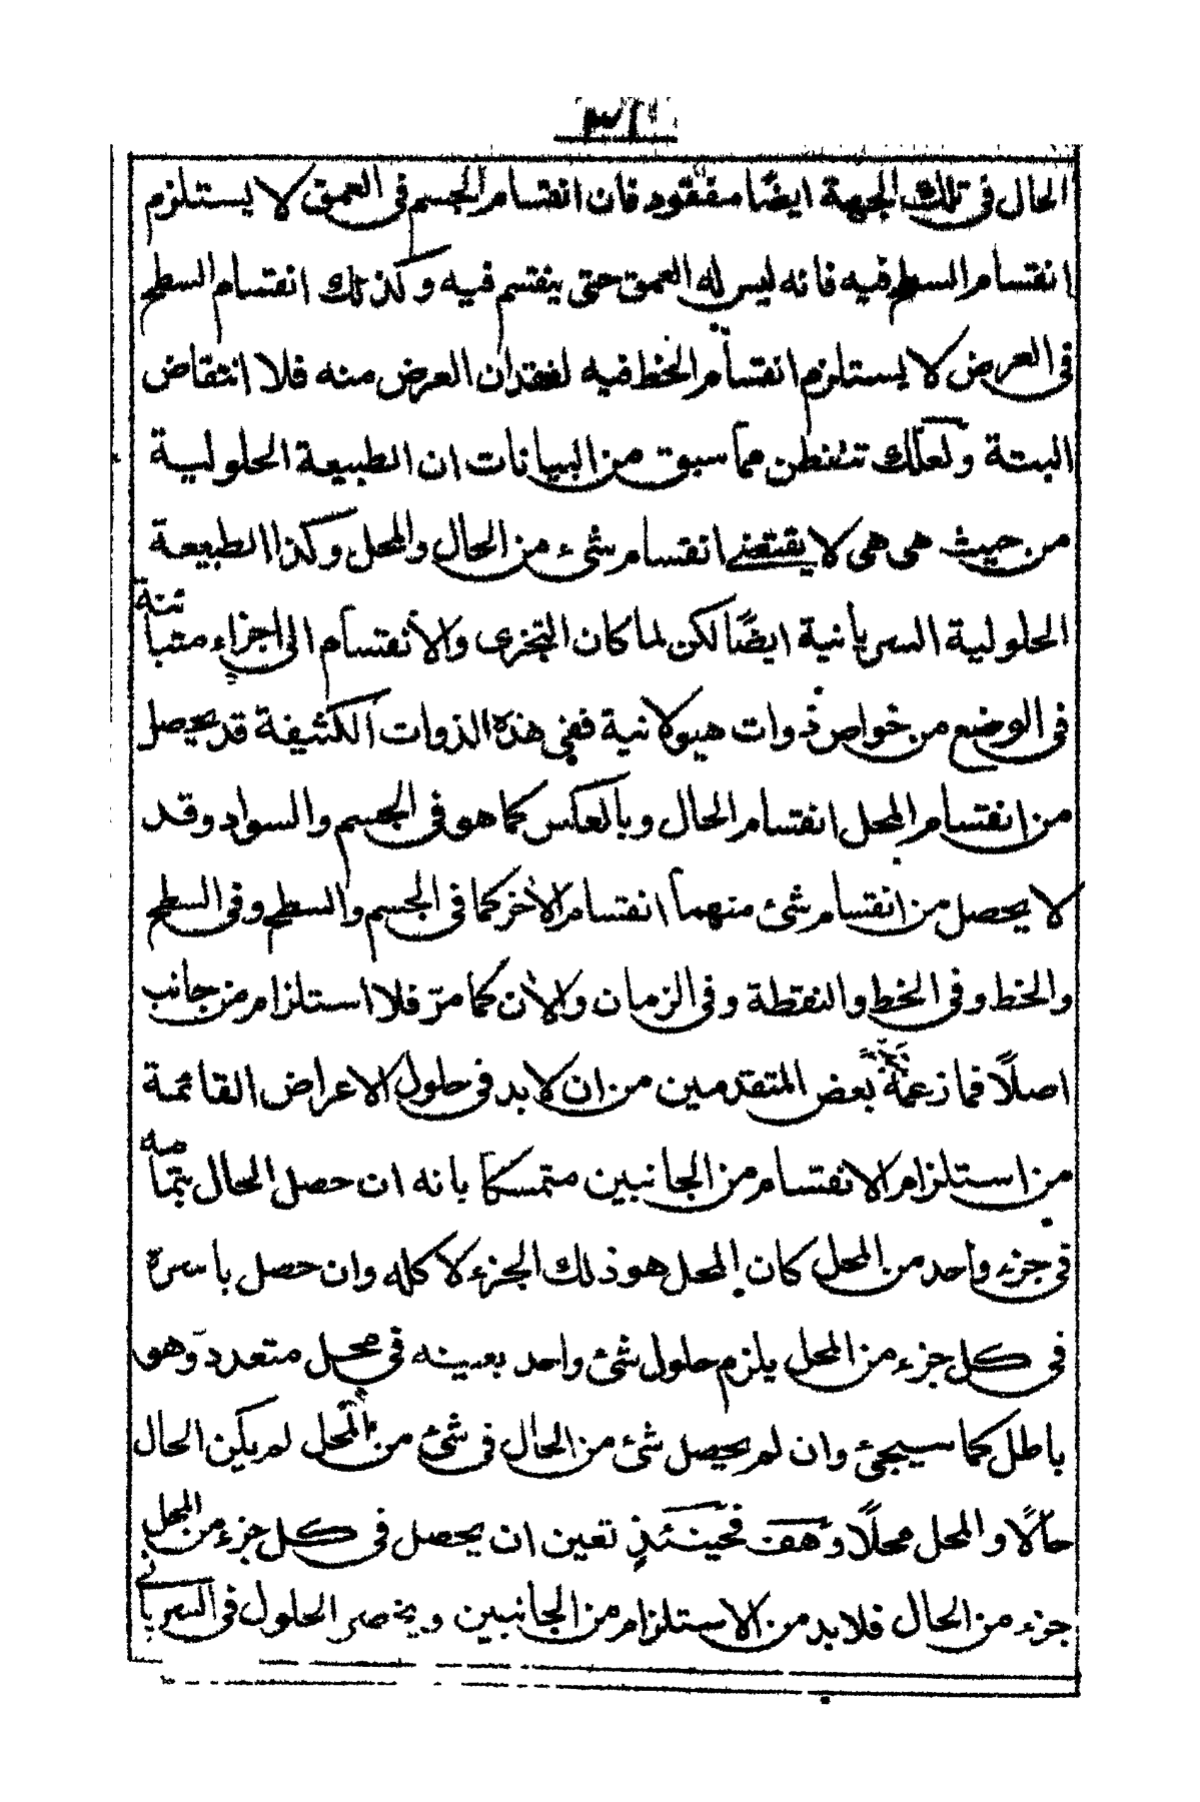 الحال فى تلك الجهة ايضًا مفقود فان انقسام الجسم فى العمق لا يستلزم
انقسام السطح فيه فانه ليس له العمق حتى ينقسم فيه وكذلك انقسام السطح
فى العرض لا يستلزم انقسام الخط فيه لفقدان العرض منه فلا انتقاض
البتة ولعلّك تتفطن ممّا سبق من البيانات ان الطبيعة الحلولية
من حيث هى هى لا يقتضے انقسام شئ من الحال والمحل وكذا الطبيعة
الحلولية السريانية ايضًا لكن لما كان التجزى والأنقسام الى اجزاء متباينة
فى الوضع من خواص ذوات هيولانية ففى هذه الذوات الكثيفة قد يحصل
من انقسام المحل انقسام الحال وبالعكس كما هو فى الجسم والسواد وقد
لا يحصل من انقسام شئ منهما انقسام الأخر كما فى الجسم والسطح وفى السطح
والخط وفى الخط والنقطة وفى الزمان والأن كما مرّ فلا استلزام من جانب
اصلًا فما زعمه بعض المتقدمين من ان لا بد فى حلول الاعراض القائمة
من استلزام الانقسام من الجانبين متمسكا بانه ان حصل الحال بتمامه
فى جزء واحد من المحل كان المحل هو ذلك الجزء لا كله وان حصل باسره
فى كل جزء من المحل يلزم حلول شئ واحد بعينه فى محل متعدد وهو
باطل كما سيجئ وان لم يحصل شئ من الحال فى شئ من المحل لم يكن الحال
حالًا والمحل محلًا وهف فحينئذٍ تعين ان يحصل فى كل جزء من المحل
جزء من الحال فلا بد من الاستلزام من الجانبين وينحصر الحلول فى السريانے